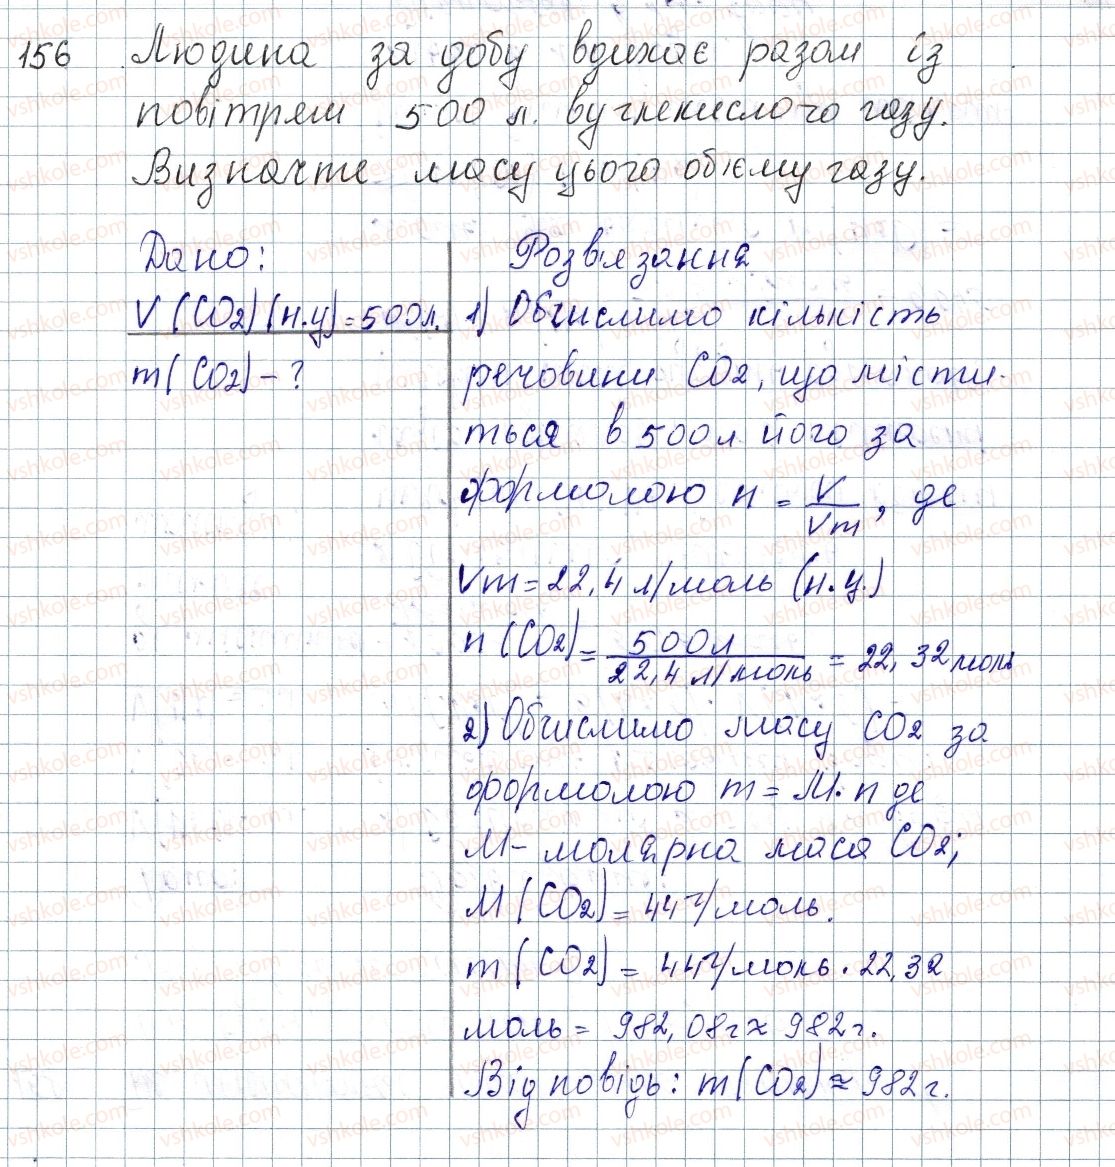 156 Людина за добу вдихає разом із
повітрям 500 л. вуглекислого газу.
Визначте масу цього об'єму газу.
Дано:
V(CO2)(н.у)=500л.
m(CO2)-?
Розв'язання
1) Обчислимо кількість
речовини CO2, що місти-
ться в 500л його за
формолою n = V/Vm, де
Vm=22,4 л/моль (н.у.)
n(CO2)= 500л / 22,4 л/моль = 22,32моль
2) Обчислимо масу CO2 за
формолою m = M·n де
M- молярна маса CO2;
M(CO2)=44г/моль.
m(CO2)= 44г/моль·22,32
моль= 982,08г≈982г.
Відповідь: m(CO2)≈982г.
vshkole.com